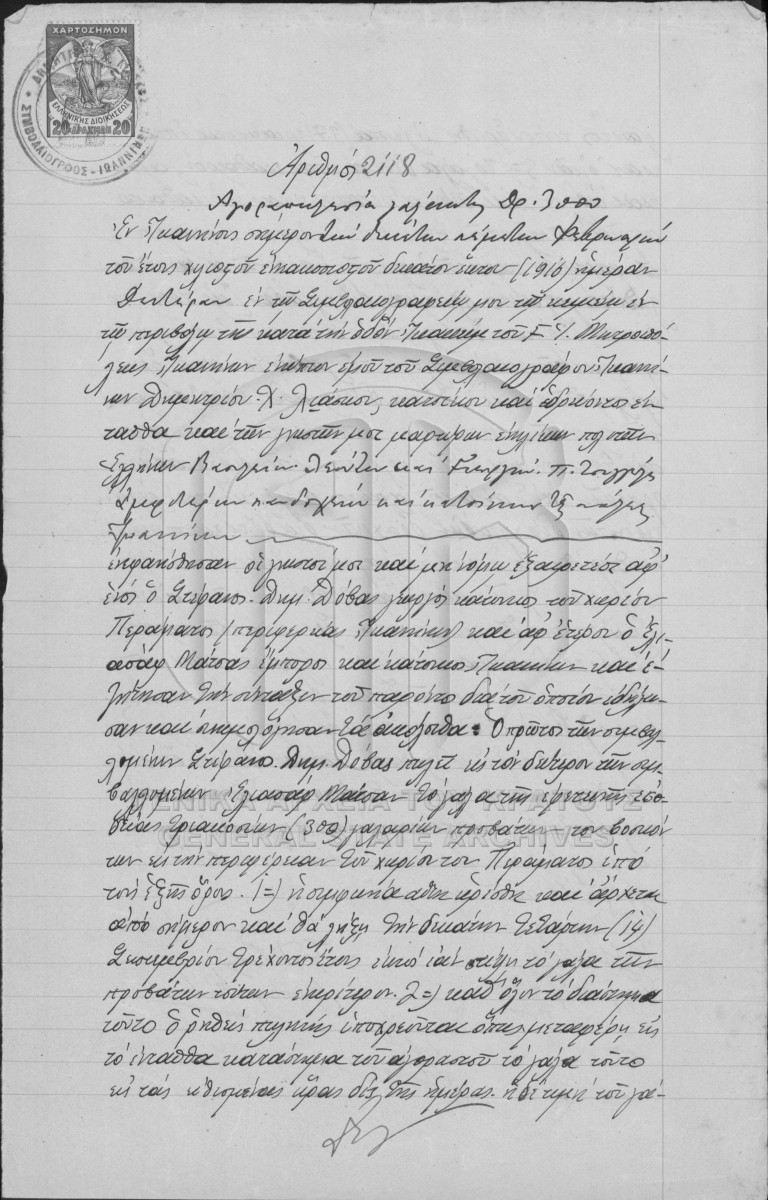 ΧΑΡΤΟΣΗΜΟΝ
ΕΛΛΗΝΙΚΗΣ ΔΙΟΙΚΗΣΕΩΣ
20 ΔΡΑΧΜΑΙ 20
ΣΥΜΒΟΛΑΙΟΓΡΑΦΟΣ - ΙΩΑΝΝΙΝΩΝ
Ἀριθμὸς 2118
Ἀγοραπωλησία γάλακτος Δρ. 3000
Ἐν Ἰωαννίνοις σήμερον τὴν δεκάτην πέμπτην Φεβρουαρίου
τοῦ ἔτους χιλιοστοῦ ἐννεακοσιοστοῦ δεκάτου ἕκτου (1916) ἡμέραν
Δευτέραν ἐν τῷ Συμβολαιογραφείῳ μου τῷ κειμένῳ ἐν
τῷ περιβόλῳ τῆς κατὰ τὴν ὁδὸν Μητροπό-
λεως Ἰωαννίνων ἐνώπιον ἐμοῦ τοῦ Συμβολαιογράφου Ἰωαννί-
νων Δημητρίου Χ. κατοίκου καὶ ἑδρεύοντος ἐν-
ταῦθα καὶ τῶν γνωστῶν μοι μαρτύρων ἐνηλίκων πολιτῶν
Ἑλλήνων Βασιλείου καὶ Γεωργίου Π.
ἀμφοτέρων καὶ κατοίκων
Ἰωαννίνων
ἐνεφανίσθησαν οἱ γνωστοί μοι καὶ μὴ νόμῳ ἐξαιρετέοι ἀφ'
ἑνὸς ὁ Στέφανος Δημ. Δόβας γεωργὸς κάτοικος τοῦ χωρίου
Περάματος (περιφερείας Ἰωαννίνων) καὶ ἀφ' ἑτέρου ὁ Ἐλι-
ασὰφ Μάτσας ἔμπορος καὶ κάτοικος Ἰωαννίνων καὶ ἐ-
ζήτησαν τὴν σύνταξιν τοῦ παρόντος διὰ τοῦ ὁποίου ἐδήλω-
σαν καὶ συνωμολόγησαν τὰ ἀκόλουθα: Ὁ πρῶτος τῶν συμβαλ-
λομένων Στέφανος Δημ. Δόβας πωλεῖ εἰς τὸν δεύτερον τῶν συμ-
βαλλομένων Ἐλιασὰφ Μάτσαν τὸ γάλα τῆς ἐφετεινῆς ἐσο-
δείας τριακοσίων (300) γαλαρίων προβάτων του βοσκόν-
των εἰς τὴν περιφέρειαν τοῦ χωρίου του Περάματος ὑπὸ
τοὺς ἑξῆς ὅρους. 1=) ἡ συμφωνία αὕτη καὶ ἄρχεται
ἀπὸ σήμερον καὶ θὰ λήξῃ τὴν δεκάτην τετάρτην (14)
Σεπτεμβρίου τρέχοντος ἔτους ἐκτὸς ἐὰν παύσῃ τὸ γάλα τῶν
προβάτων τούτων ἐνωρίτερον. 2=) καθ' ὅλον τὸ διάστημα
τοῦτο ὁ ῥηθεὶς πωλητὴς ὑποχρεοῦται ὅπως μεταφέρῃ εἰς
τὸ ἐνταῦθα κατάστημα τοῦ ἀγοραστοῦ τὸ γάλα τοῦτο
εἰς τὰς ὡρισμένας ὥρας δὶς τῆς ἡμέρας. ἡ δὲ τιμὴ τοῦ γά-
ΓΕΝΙΚΑ ΑΡΧΕΙΑ ΤΟΥ ΚΡΑΤΟΥΣ
GENERAL STATE ARCHIVES